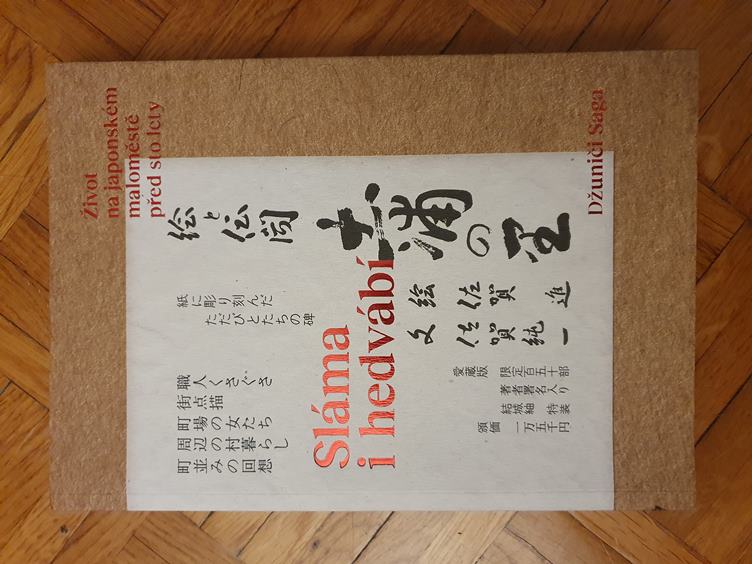 Život
na japonském
maloměstě
před sto lety
絵と伝聞
紙に彫り刻んだ
ただびとたちの碑
職人くさぐさ
街点描
町場の女たち
周辺の村暮らし
町並みの回想
土浦の里
Sláma
i hedvábí
絵 佐賀 進
文 佐賀純一
愛蔵版 限定百五十部
著者署名入り
結城紬特装
頒価 一万五千円
Džuniči Saga